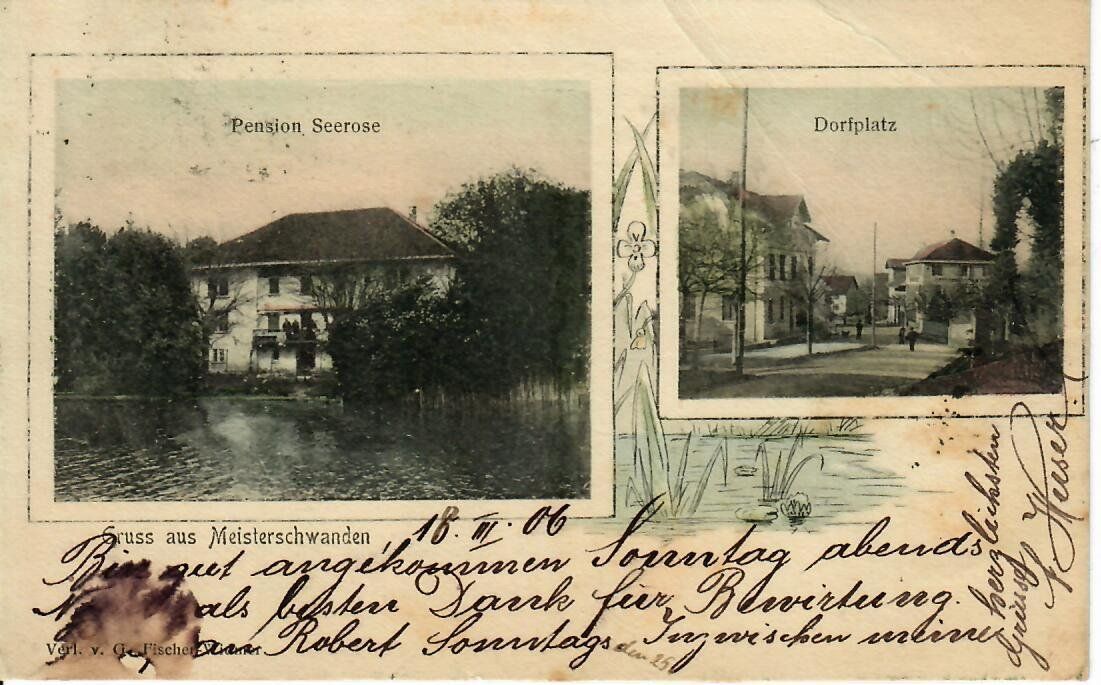 Pension Seerose
Dorfplatz
Gruss aus Meisterschwanden, 18. III. 06
Bin gut angekommen Sonntag abends
als besten Dank für Bewirtung.
am Robert Sonntags den 25. Inzwischen meine
herzlichsten
Grüsse
Verl. v. G. Fischer-Widmer